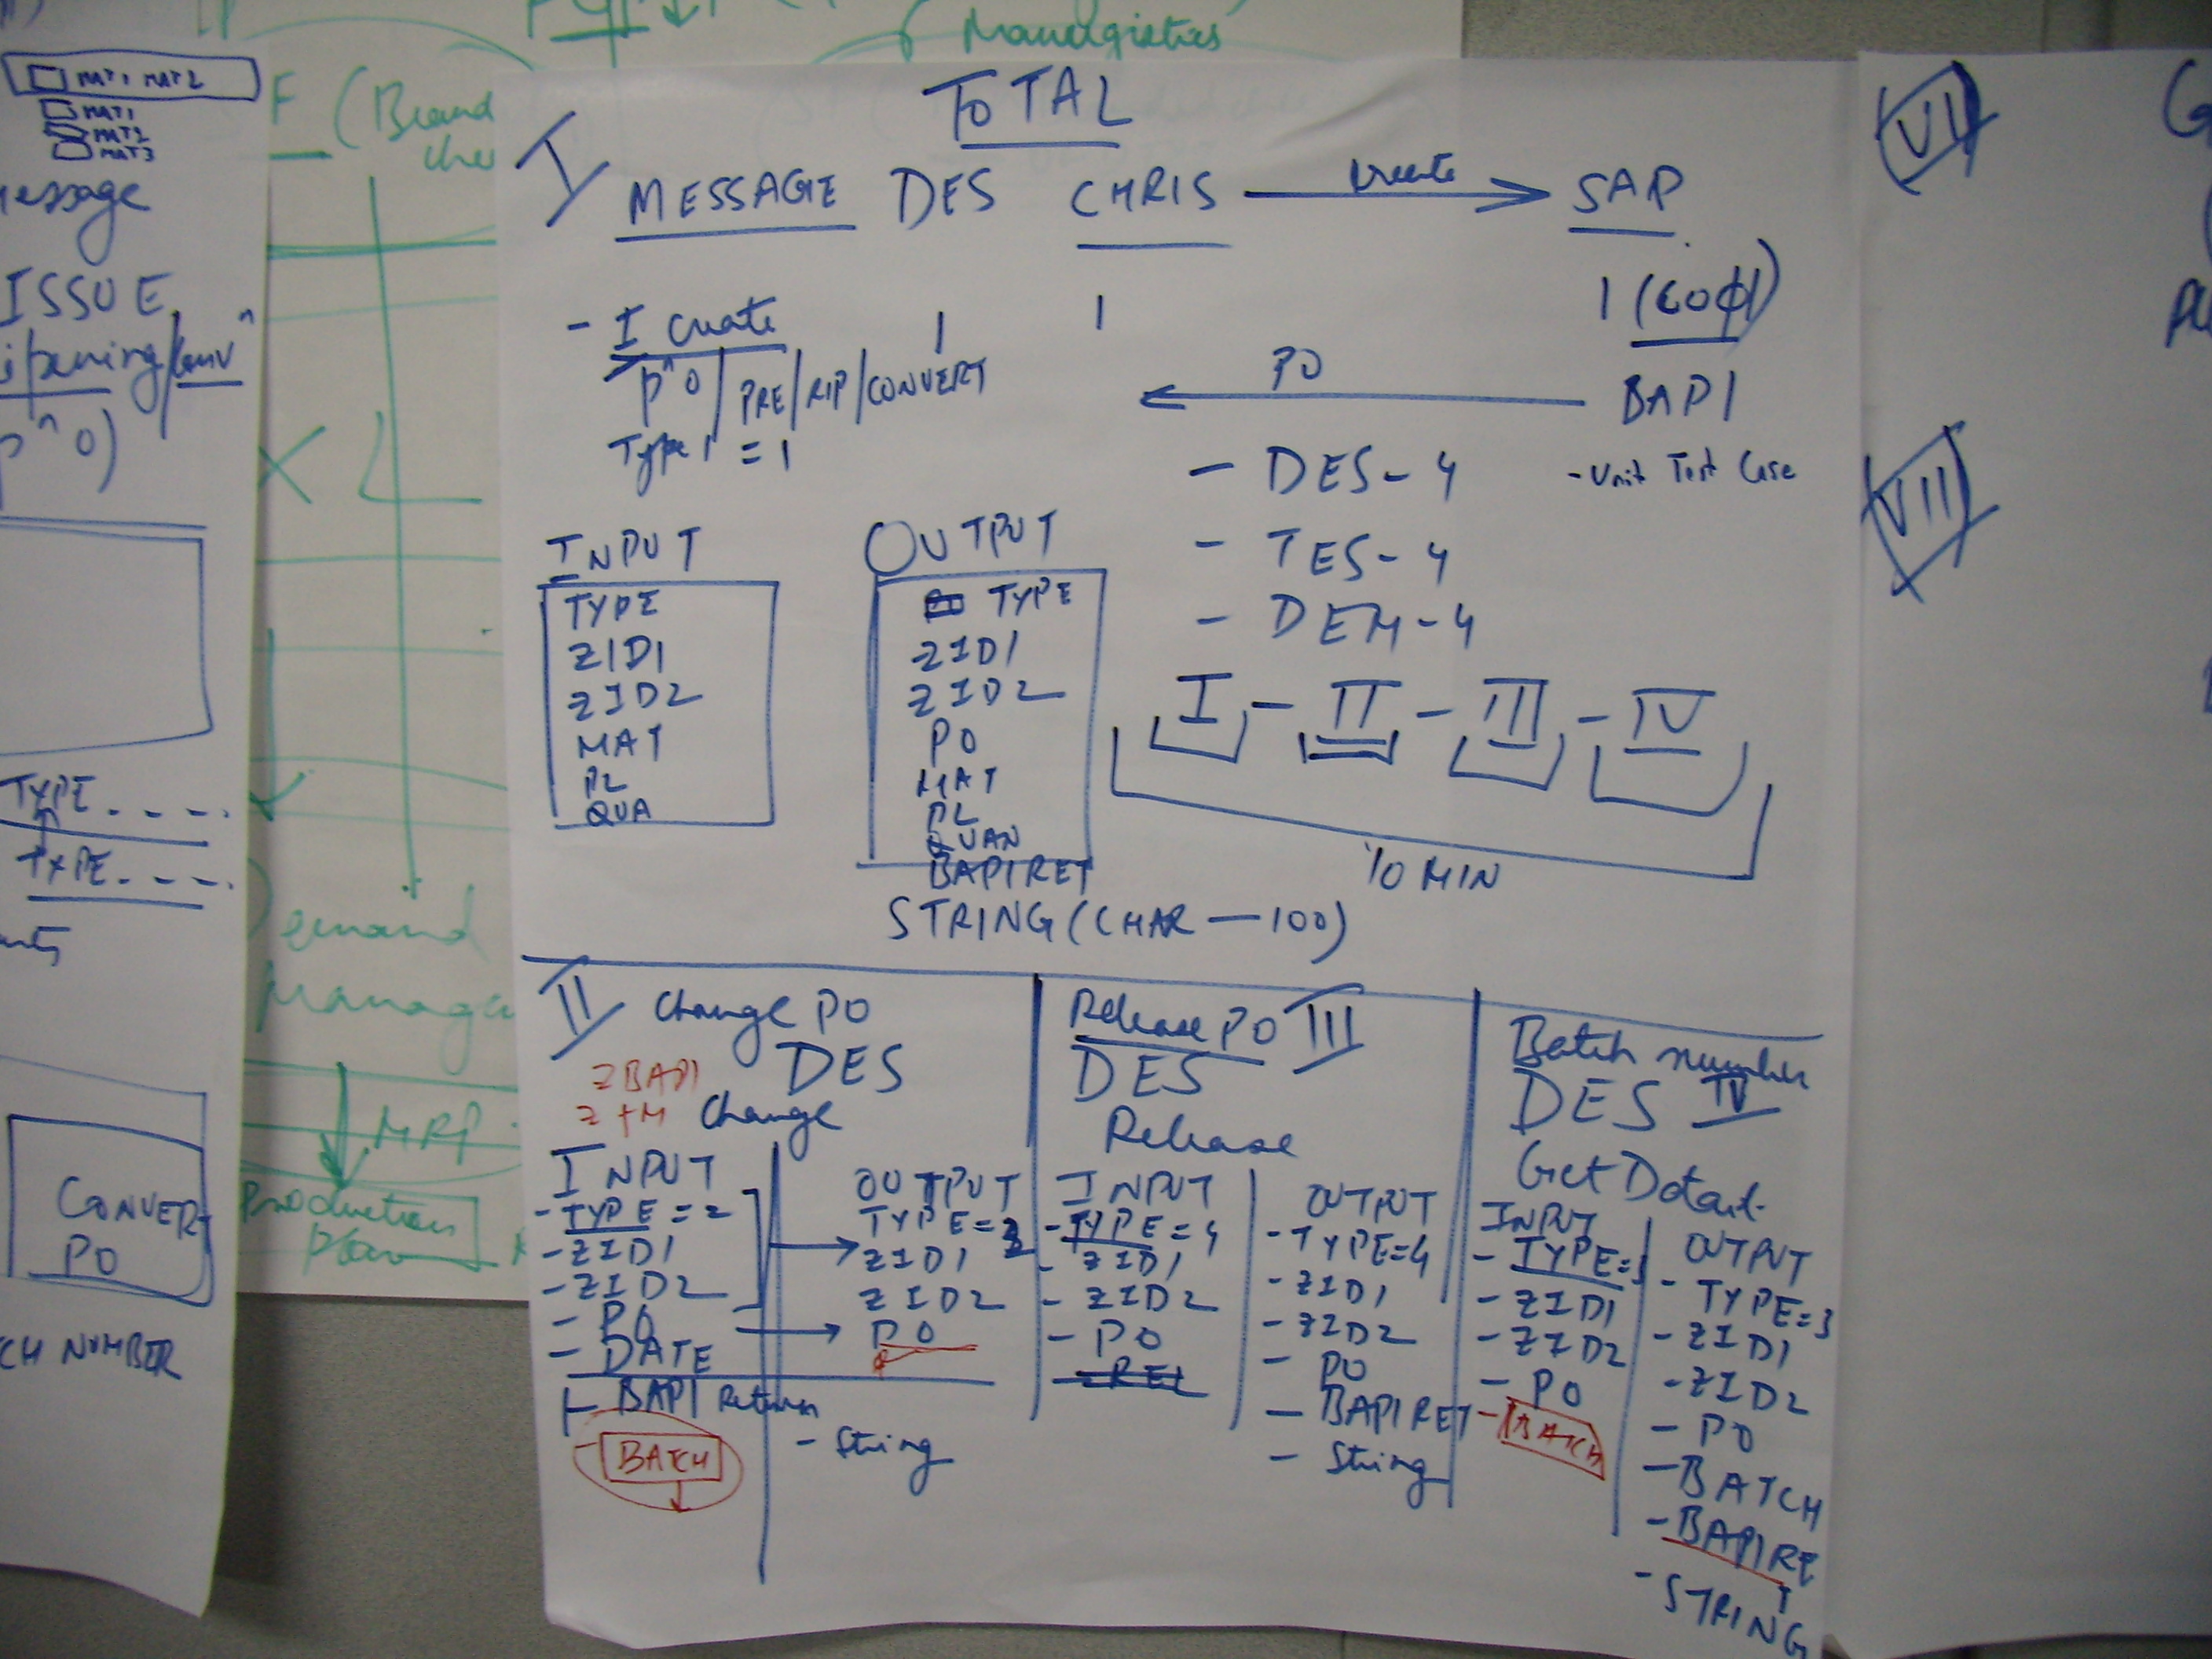 TOTAL
I MESSAGE DES CHRIS create SAP
1 (CO01)
- I create 1 1
p^o / PRE/RIP/CONVERT
Type 1 = 1
PO BAPI
- DES-4
- Unit Test Case
- TES-4
- DEM-4
I - II - III - IV
10 MIN
INPUT
TYPE
ZID1
ZID2
MAT
PL
QUA
OUTPUT
TYPE
ZID1
ZID2
PO
MAT
PL
QUAN
BAPIRET
STRING (CHAR — 100)
II Change PO
DES
ZBAPI
Z FM
Change
INPUT
- TYPE = 2
- ZID1
- ZID2
- PO
- DATE
- BAPI Return
- BATCH
OUTPUT
TYPE = 2
ZID1
ZID2
PO
- String
Release PO III
DES
Release
INPUT
- TYPE = 4
- ZID1
- ZID2
- PO
- REL
OUTPUT
- TYPE=4
- ZID1
- ZID2
- PO
- BAPIRET
- String
Batch number
DES IV
Get Detail
INPUT
- TYPE=3
- ZID1
- ZID2
- PO
- BATCH
OUTPUT
- TYPE=3
- ZID1
- ZID2
- PO
- BATCH
- BAPIRET
- STRING
MAT1 MAT2
MAT1
MAT2
MAT3
message
ISSUE
/conv^n
p^o)
TYPE - - - -
TYPE - - - -
CONVERT
PO
CH NUMBER
F (Brand
Manugistics
Demand
MRP
Production
Plan
VI
VII
G